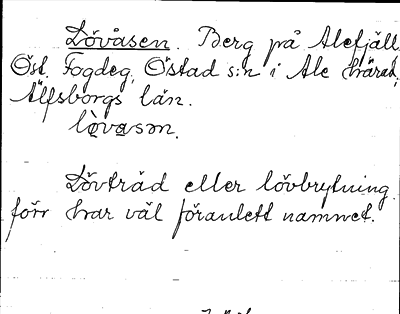 Lövåsen. Berg på Alefjäll.
Öst. Fogdeg, Östad s:n i Ale härad,
Älfsborgs län.
lòvasən.
Lövträd eller lövbrytning
förr har väl föranlett namnet.